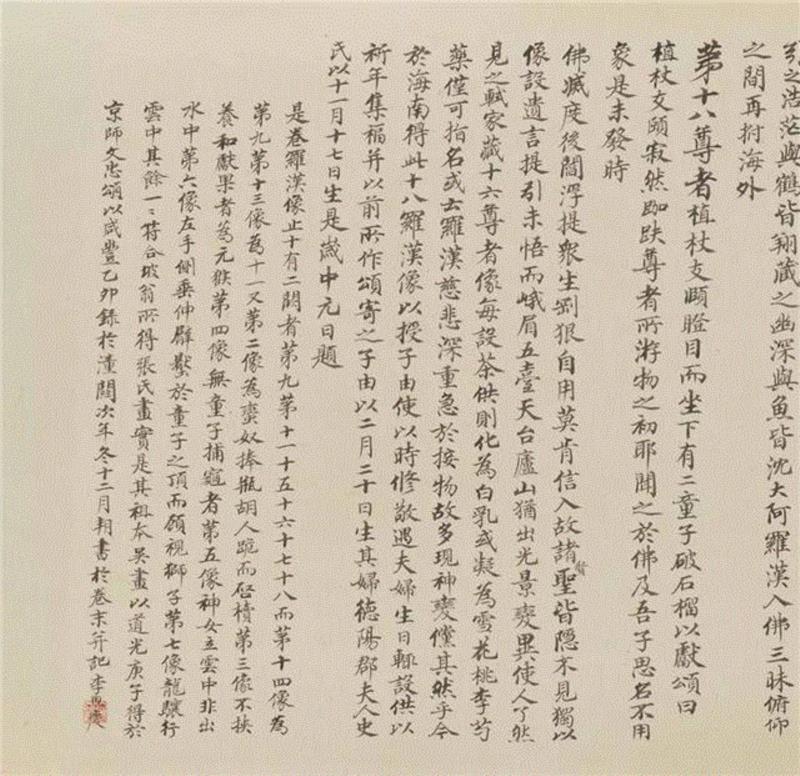 引之浩茫與鶴皆翔藏之幽深與魚皆沈大阿羅漢入佛三昧俯仰
之間再拊海外
第十八尊者植杖支頤瞪目而坐下有二童子破石榴以獻頌曰
植杖支頤寂然跏趺尊者所游物之初耶聞之於佛及吾子思名不用
象是未發時
佛滅度後閻浮提眾生剛狠自用莫肯信入故諸賢聖皆隱不見獨以
像設遺言提引未悟而峨眉五臺天台廬山猶出光景變異使人了然
見之軾家藏十六尊者像每設茶供則化為白乳或凝為雪花桃李芍
藥僅可指名或云羅漢慈悲深重急於接物故多現神變儻其然乎今
於海南得此十八羅漢像以授子由使以時修敬遇夫婦生日輒設供以
祈年集福并以前所作頌寄之子由以二月二十日生其婦德陽郡夫人史
氏以十一月十七日生是歲中元日題
是卷羅漢像止十有二閼者第九第十一十五十六十七十八而第十四像為
第九第十三像為十一又第二像為蠻奴捧瓶胡人跪而啓櫝第三像不挾
養和獻果者為元猨第四像無童子捕竈者第五像神女立雲中非出
水中第六像左手側垂伸臂鼜於童子之頂而顧視獅子第七像龍驤行
雲中其餘一一符合坡翁所得張氏畫實是其祖本吳畫以道光庚子得於
京師文忠頌以咸豐乙卯錄於潼關次年冬十二月朔書於卷末并記李恩慶